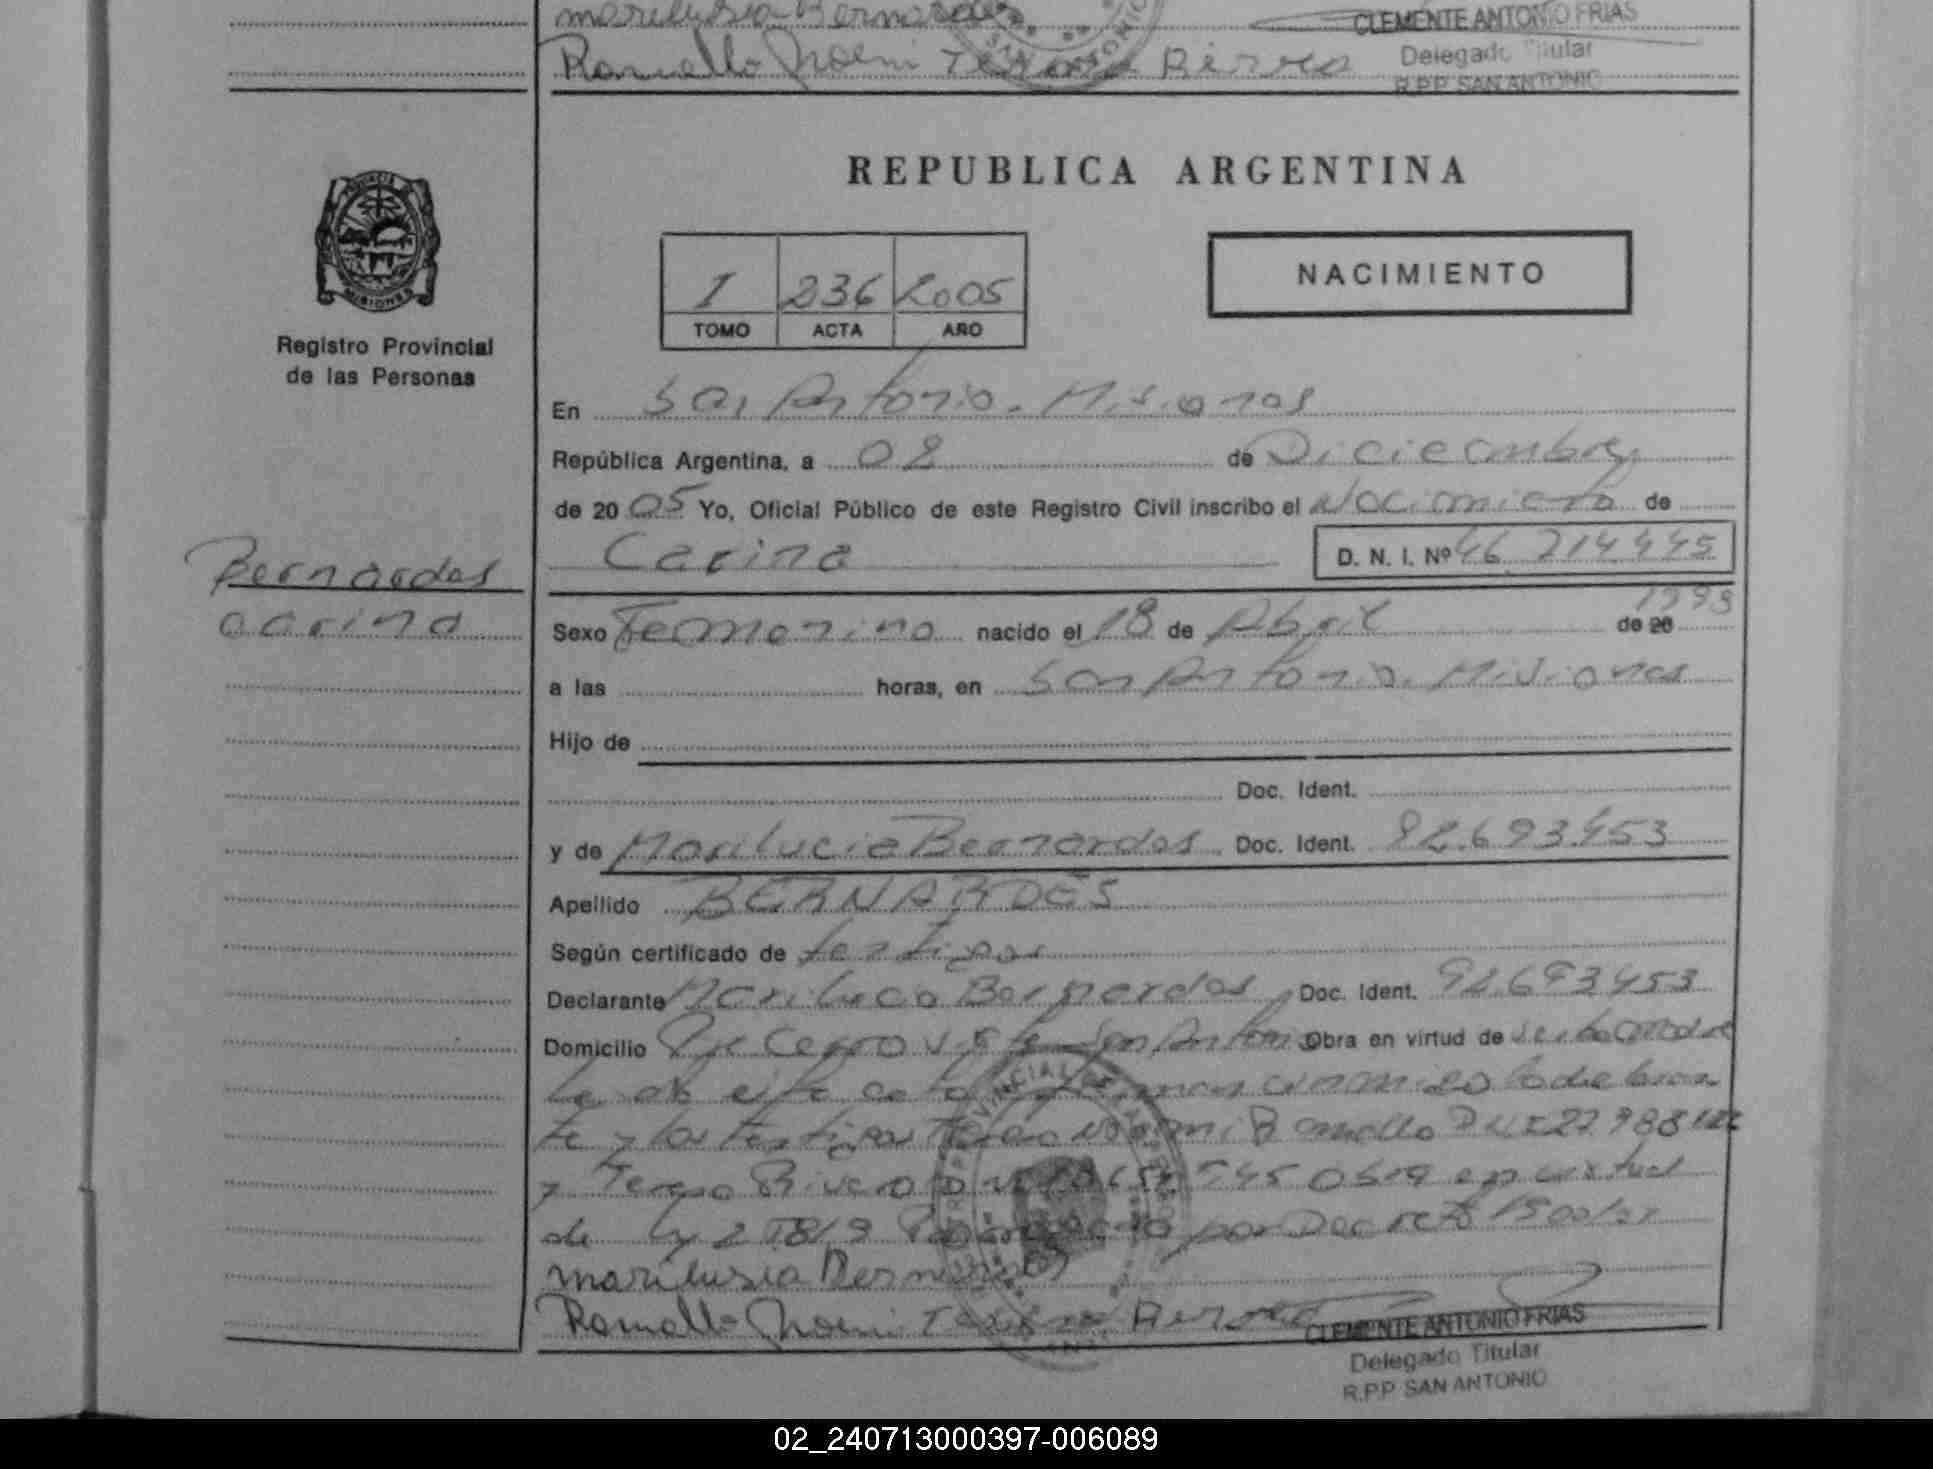 marilusia Bernardes
CLEMENTE ANTONIO FRIAS
Ramallo Noemi Teresa Rivero
Delegado Titular
R.P.P. SAN ANTONIO
REPUBLICA ARGENTINA
PROVINCIA DE MISIONES
I 236 2005
TOMO ACTA AÑO
NACIMIENTO
Registro Provincial
de las Personas
En San Antonio. Misiones
República Argentina, a 02 de Diciembre
de 20 05 Yo, Oficial Público de este Registro Civil inscribo el Nacimiento de
Carina D. N. I. Nº 46.214445
Bernardes
carina
Sexo Femenino nacido el 18 de Abril de 20 1993
a las horas, en San Antonio. Misiones
Hijo de
Doc. Ident.
y de Marilucia Bernardes Doc. Ident. 92.693.453
Apellido BERNARDES
Según certificado de testigos
Declarante Marilucia Bernardes Doc. Ident. 92.693453
Domicilio Pje Cerro San Antonio Obra en virtud de
y los testigos Noemi Ramallo
y Rivero en virtud
de ley por Decreto
marilusia Bernardes
Ramallo Noemi Teresa Rivero
CLEMENTE ANTONIO FRIAS
Delegado Titular
R.P.P. SAN ANTONIO
02_240713000397-006089